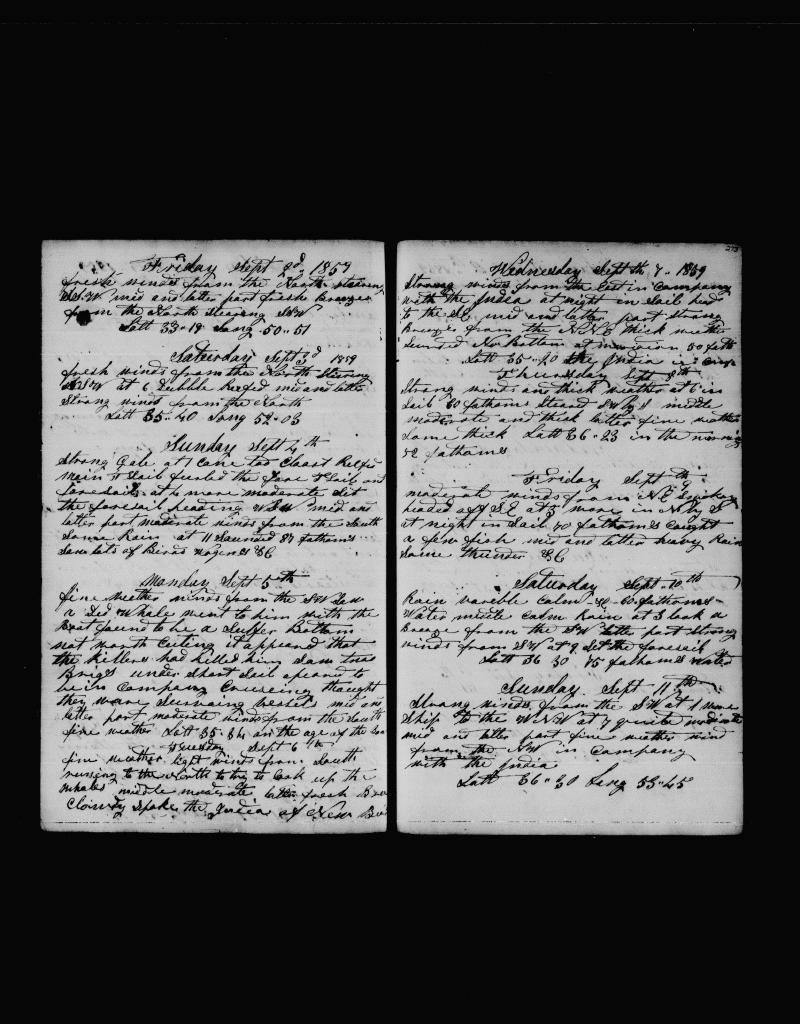 Friday Sept 2d, 1859
fresh winds from the North stearing
SSW mid and latter part fresh Breezes
from the North Stearing SSW
Latt 33-19 Long 50-51
Saturday Sept 3d 1859
fresh winds from the North Stearing
SSW at 6 Dubble Reefed mid and latter
Strong winds from the North
Latt 35-40 Long 52-03
Sunday Sept 4th
Strong Gale at 1 Close Reefed
main T Sail furled the fore T Sail and
foresail at 4 more moderate Set
the foresail heading WSW mid and
latter part moderate winds from the South
Some Rain at 11 Saunded 87 fathoms
Saw lots of Birds
Monday Sept 5th
fine weather winds from the SW Saw
a Ded Whale went to him with the
Boat found to be a Sulfer Bottom
not worth Cuting it appeared that
the killers had killed him Saw two
Brigs under Short Sail apeared to
be in Company Cruising thaught
they ware Survaing vessels mid and
latter part moderate winds from the South
fine weather Latt 35-34 on the age of the
Tuesday Sept 6th
fine weather light winds from South
runing to the North to try to Look up the
whales middle moderate latter fresh
Clowdy Spoke the India of New
273
Wednesday Sept th 7-1859
Strong winds from the East in Company
with the India at night in Sail hed
to the SE mid and latter part Strong
Breezes from the NNE thick wether
Sunded No Bottom at 50 fath
Latt 35-40 the India in
Thursday Sept 8th
Strong winds and thick weather at 6 in
Sail 60 fathoms Steard SW by S middle
moderate and thick latter fine weather
Some thick Latt 36-23 in the morning
52 fathoms
Friday Sept 9th
moderate winds from NE Smokey
headed off SE at 3 wore in N by
at night in Sail 70 fathoms Caught
a few fish mid and latter heavy Rain
Some thunder &C
Saturday Sept 10th
Rain varible Calm 60 fathoms
Water middle Calm Rain at 3 took a
Breeze from the SW latter part Strong
winds from SW at 9 Set the foresail
Latt 36 30 75 fathoms water
Sunday Sept 11th
Strong winds from the SW at 1 wore
Ship to the WNW at 7 quite moderate
mid and latter part fine wether wind
from the NW in Company
with the India
Latt 36-30 Long 53-45